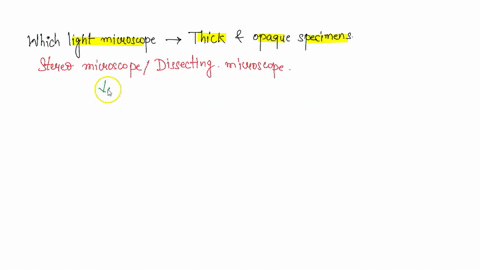 Which light microscope → Thick & opaque specimens.
Stereo microscope / Dissecting microscope.